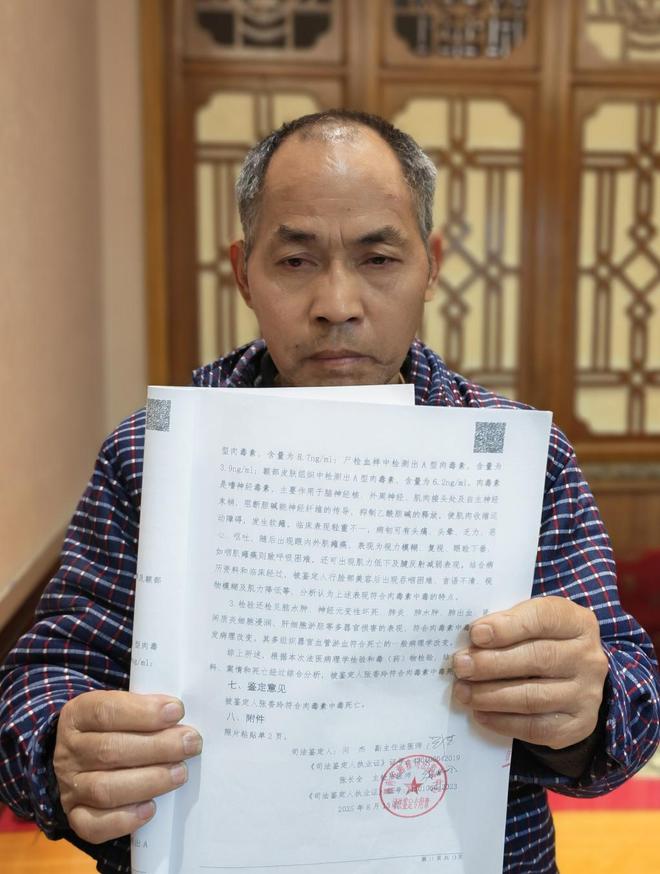 型肉毒素，含量为8.7ng/ml；尸检血样中检测出A型肉毒素，含量为
3.9ng/ml；额部皮肤组织中检测出A型肉毒素，含量为6.2ng/ml。肉毒素
是嗜神经毒素，主要作用于脑神经核、外周神经、肌肉接头处及自主神经
末梢，阻断胆碱能神经纤维的传导，抑制乙酰胆碱的释放，使肌肉收缩运
动障碍，发生软瘫，临床表现轻重不一，病初可有头痛、头晕、乏力、恶
心、呕吐，随后出现眼内外肌瘫痪，表现为视力模糊、复视、眼睑下垂，
如咽肌瘫痪则致呼吸困难，还可出现肌力低下及腱反射减弱表现。结合病
历资料和临床经过，被鉴定人行脸部美容后出现吞咽困难、言语不清、视
物模糊及肌力降低等，分析认为上述表现符合肉毒素中毒的特点。
3.检验还检见脑水肿、神经元变性坏死、肺炎、肺水肿、肺出血、
间质炎细胞浸润、肝细胞淤胆等多器官损害的表现，符合肉毒素中毒
发病理改变。其多组织器官血管淤血符合死亡的一般病理学改变。
综上所述，根据本次法医病理学检验和毒（药）物检验，
料、案情和死亡经过综合分析，被鉴定人张香玲符合肉毒素中毒死
七、鉴定意见
被鉴定人张香玲符合肉毒素中毒死亡。
八、附件
照片粘贴单2页。
司法鉴定人：闫杰 副主任法医师
《司法鉴定人执业证》证号：
张长全 主
《司法鉴定人执业证》
2025年8月
乳额部
型肉毒
ng/ml；
出A